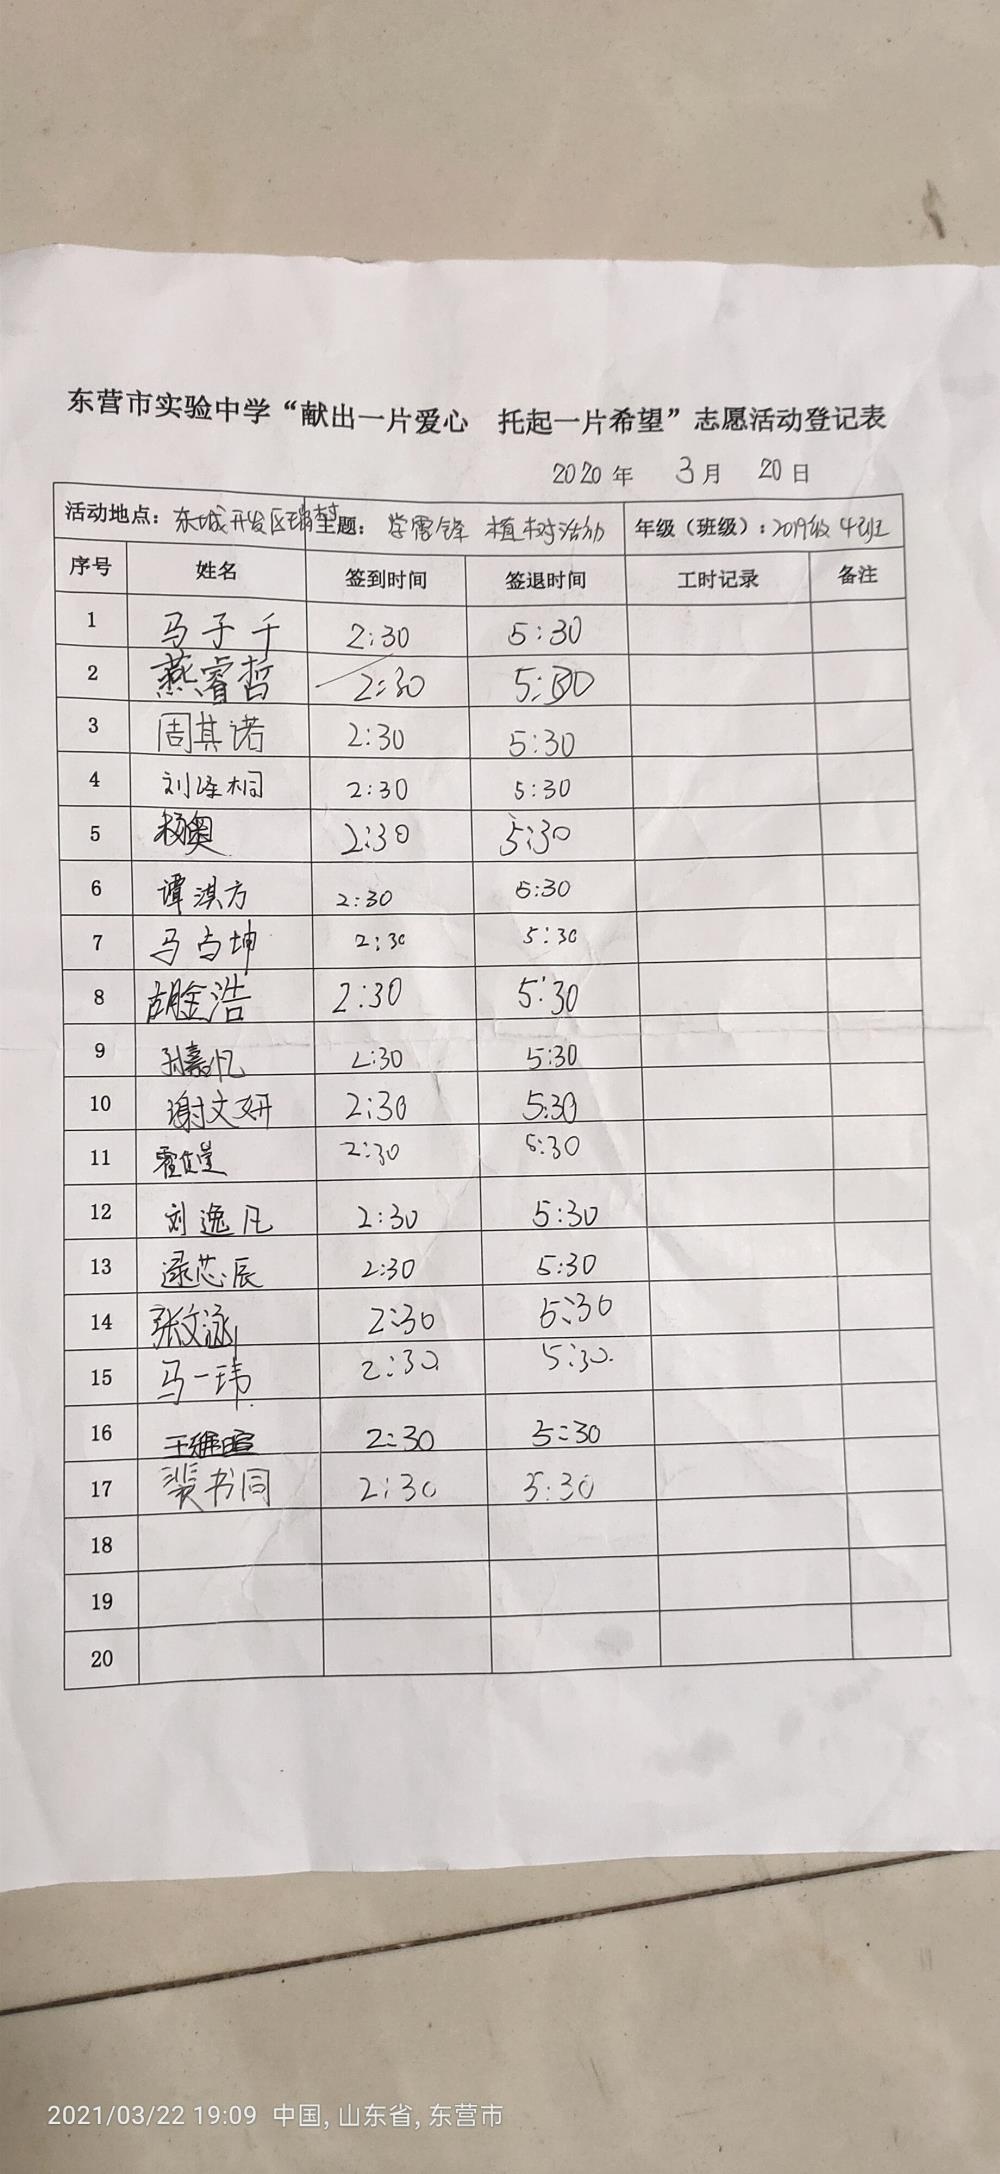 东营市实验中学“献出一片爱心 托起一片希望”志愿活动登记表
2020 年 3 月 20 日
活动地点：东城开发区 主题：学雷锋 植树活动 年级（班级）：2019级 4班
序号 姓名 签到时间 签退时间 工时记录 备注
1 马子千 2:30 5:30
2 燕睿哲 2:30 5:30
3 周其诺 2:30 5:30
4 刘泽桐 2:30 5:30
5 杨奥 2:30 5:30
6 谭淇方 2:30 5:30
7 马占坤 2:30 5:30
8 胡金浩 2:30 5:30
9 孙嘉忆 2:30 5:30
10 谢文妍 2:30 5:30
11 霍 2:30 5:30
12 刘逸凡 2:30 5:30
13 逯芯辰 2:30 5:30
14 张文涵 2:30 5:30
15 马一玮 2:30 5:30
16 王 暄 2:30 5:30
17 裴书同 2:30 5:30
18
19
20
2021/03/22 19:09 中国, 山东省, 东营市